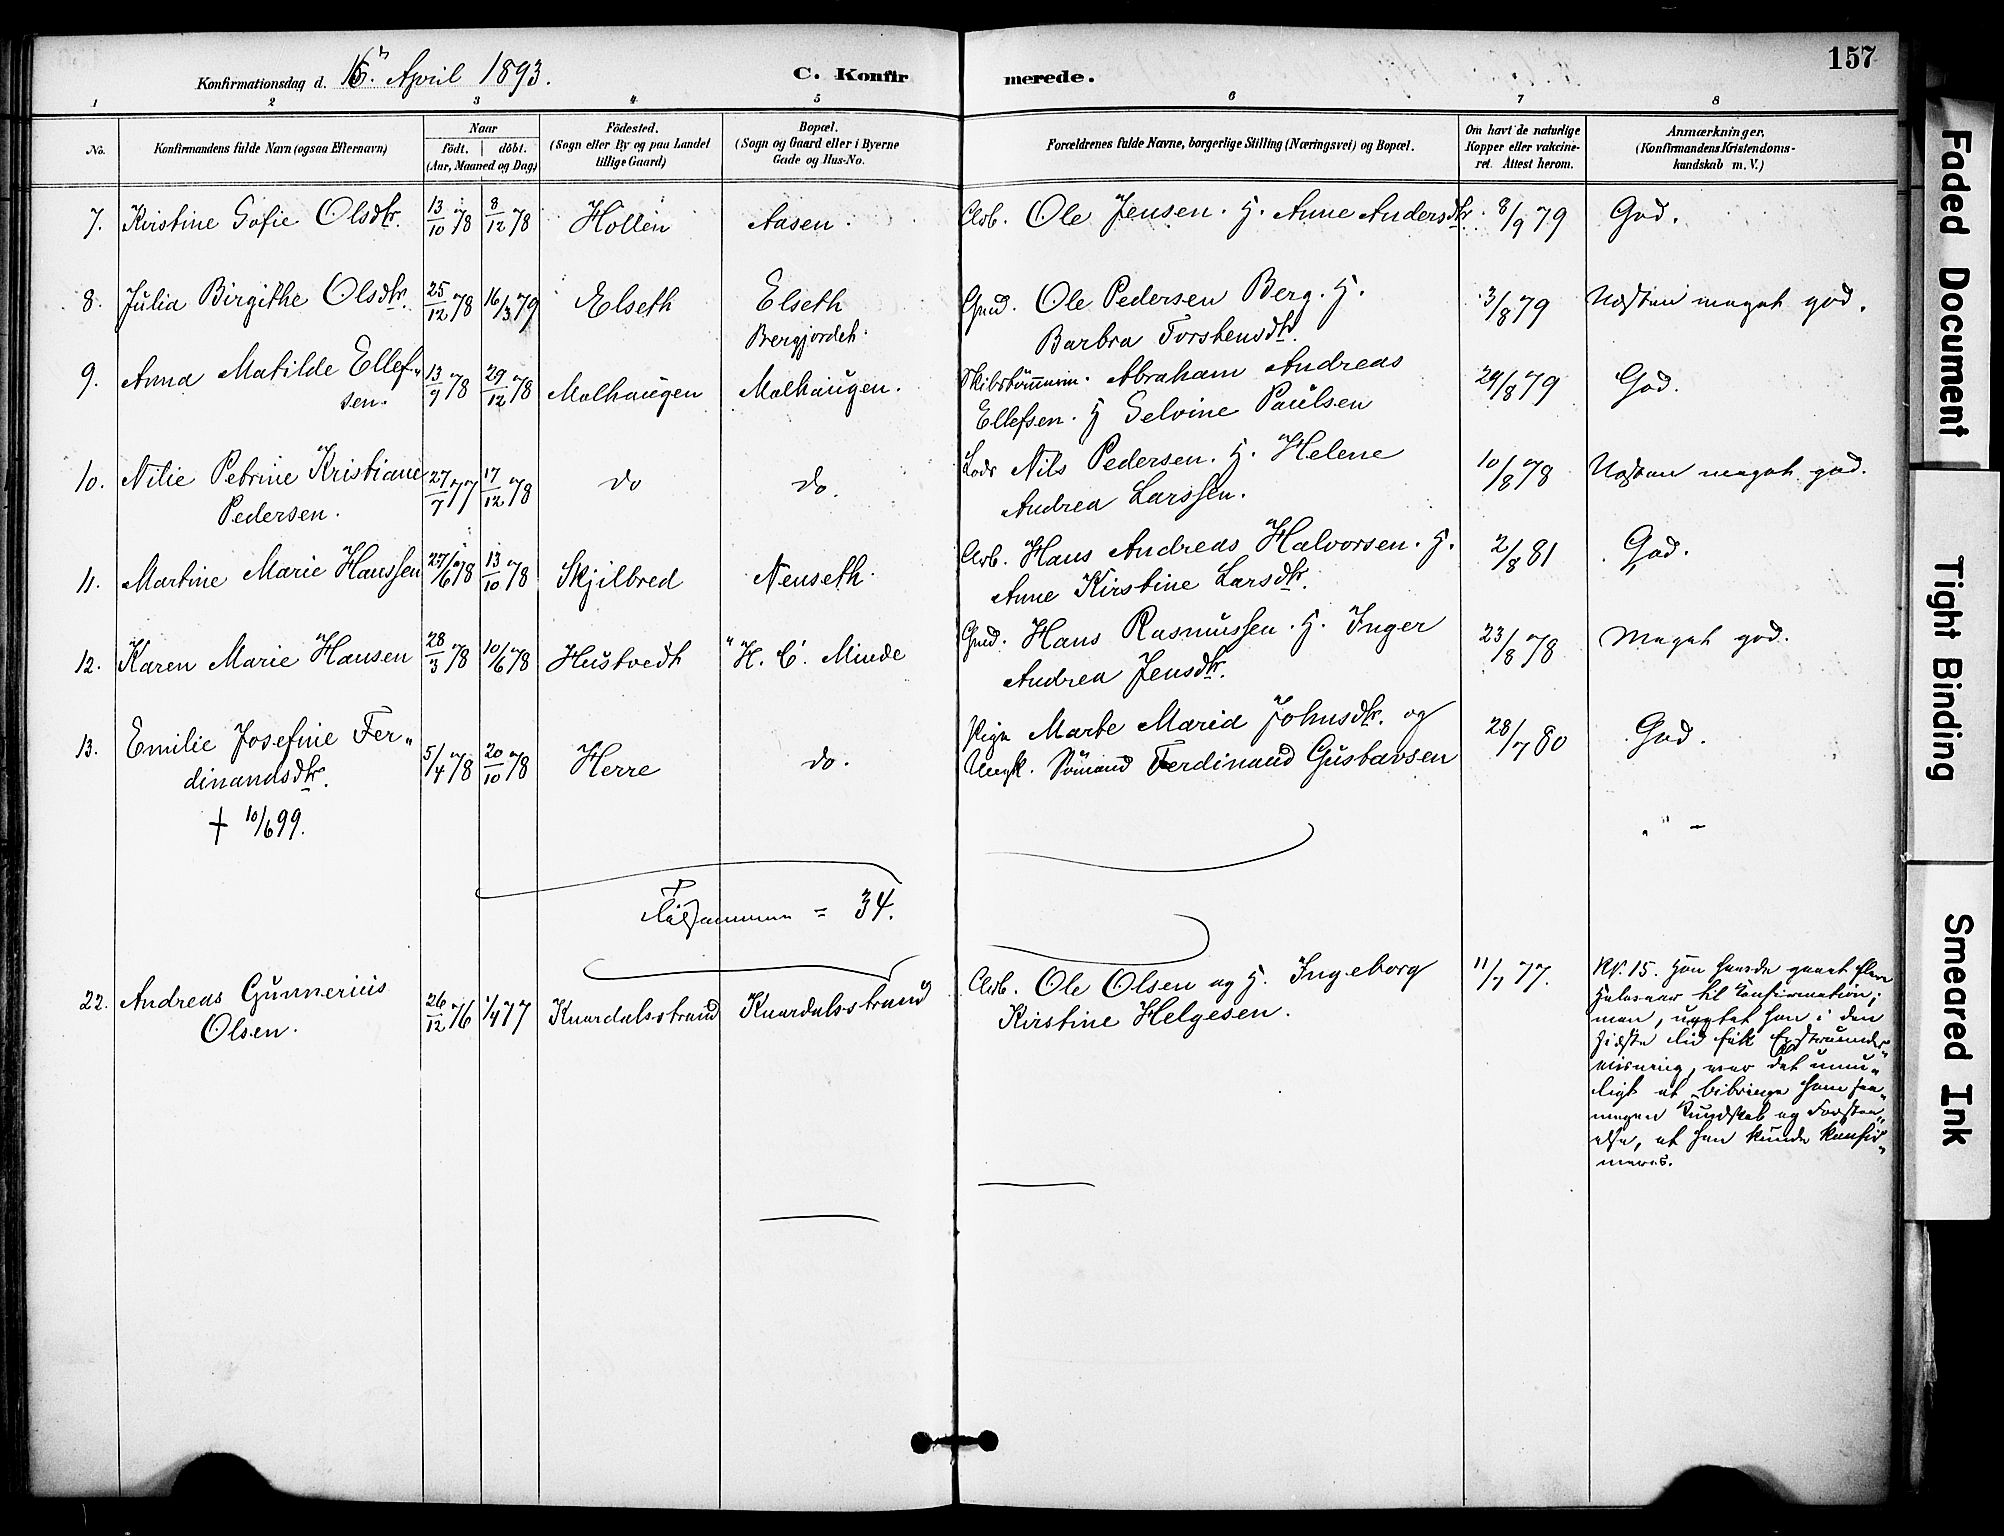 157
Konfirmationsdag d. 16. April 1893.
C. Konfirmerede.
1 2 3 4 5 6 7 8
No.
Konfirmandens fulde Navn (ogsaa Efternavn)
Naar
födt. döbt.
(Aar, Maaned og Dag)
Födested.
(Sogn eller By og paa Landet
tillige Gaard)
Bopæl.
(Sogn og Gaard eller i Byerne
Gade og Hus-No.
Forældrenes fulde Navne, borgerlige Stilling (Næringsvei) og Bopæl.
Om havt de naturlige
Kopper eller vakcine-
ret. Attest herom.
Anmærkninger.
(Konfirmandens Kristendoms-
kundskab m. V.)
7. Kirstine Sofie Olsdtr. 13/10 78 8/12 78 Hollen Aasen. Arb. Ole Jensen. H. Anne Andersdtr. 8/9 79 God.
8. Julia Birgithe Olsdtr. 25/12 78 16/3 79 Elseth Elseth Gmd. Ole Pedersen Berg. H. 3/8 79 Næsten meget god.
Bergjordet. Barbra Torstensdtr.
9. Anna Matilde Ellef- 13/9 78 29/12 78 Molhaugen Molhaugen. Skibstømmerm. Abraham Andreas 29/8 79 God.
sen. Ellefsen. H Selvine Paulsen
10. Nilie Petrine Kristiane 27/7 77 17/12 78 do do. Lods Nils Pedersen. H. Helene 10/8 78 Næsten meget god.
Pedersen. Andrea Larssen.
11. Martine Marie Hanssen 27/6 78 13/10 78 Skjilbred Nenseth. Arb. Hans Andreas Halvorsen. H. 2/8 81 God.
Anne Kirstine Larsdtr.
12. Karen Marie Hansen 28/3 78 10/6 78 Hustvedt H. C. Minde Gmd. Hans Rasmussen. H. Inger 23/8 78 Meget god.
Andrea Jensdtr.
13. Emilie Josefine Fer- 5/4 78 20/10 78 Herre do. Pige Marte Maria Johnsdtr. og 28/7 80 God.
dinandsdtr. Ungk. Sömand Ferdinand Gustavsen
† 10/6 99.
Tilsammen = 34.
22. Andreas Gunnerius 26/12 76 1/4 77 Knardalsstrand Knardalsstrand Arb. Ole Olsen og H. Ingeborg 11/7 77. No. 15. Han havde gaaet flere
Olsen. Kirstine Helgesen. Halvaar til Konfirmation;
men, uagtet han i den
sidste Tid fik Extraunder-
visning, var det umu-
ligt at bibringe ham saa
megen Kundskab og Forstaa-
else, at han kunde konfir-
meres.
Faded Document
Tight Binding
Smeared Ink